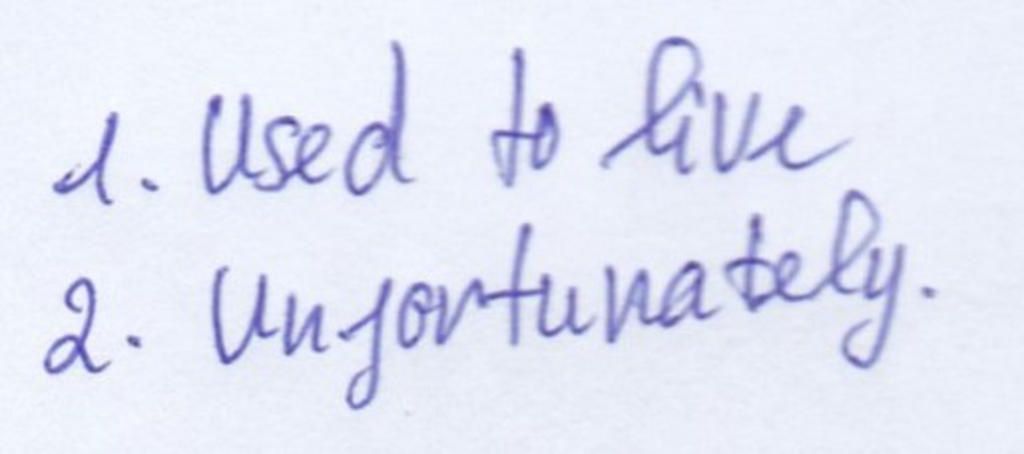 1. Used to live
2. Unfortunately.